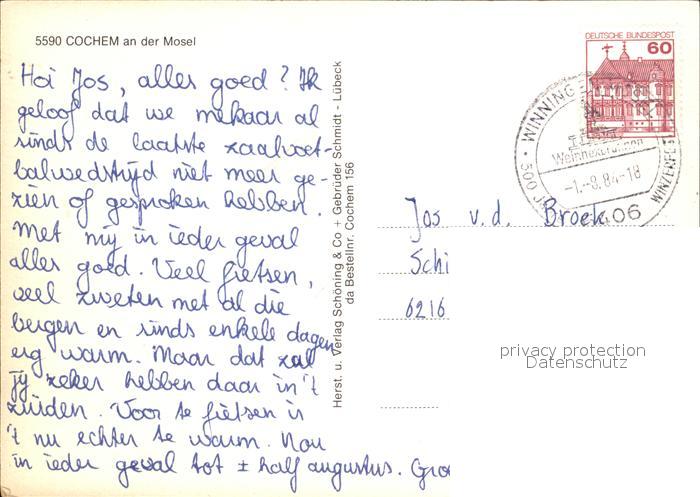 5590 COCHEM an der Mosel
Hoi Jos, alles goed? Ik
geloof dat we mekaar al
sinds de laatste zaalvoet-
balwedstrijd niet meer ge-
zien of gesproken hebben.
Met mij in ieder geval
alles goed. Veel fietsen,
veel zweten met al die
bergen en sinds enkele dagen
erg warm. Maar dat zal
jij zeker hebben daar in 't
zuiden. Voor te fietsen is
't nu echter te warm. Nou
in ieder geval tot ± half augustus. Gro
Herst. u. Verlag Schöning & Co + Gebrüder Schmidt - Lübeck
da Bestellnr. Cochem 156
DEUTSCHE BUNDESPOST
60
WINNING
500 J
WINZERFEST
-1.-8.84-18
5406
Jos v.d. Broek
Schi
6216
privacy protection
Datenschutz